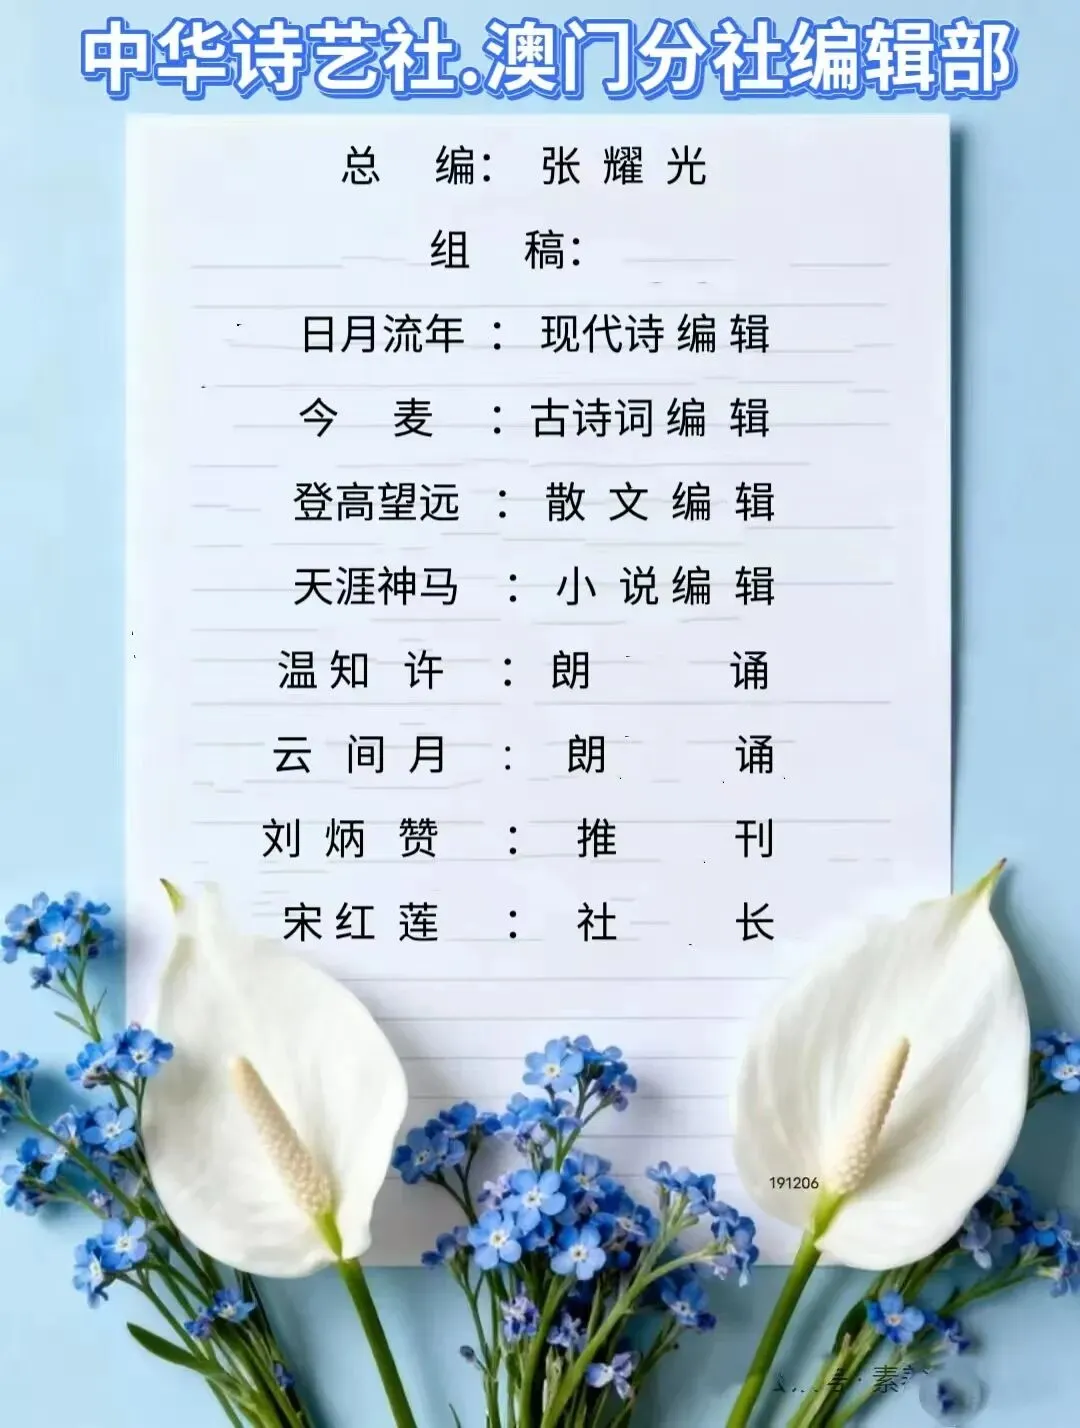 中华诗艺社.澳门分社编辑部
总 编： 张 耀 光
组 稿：
日月流年 ： 现代诗 编 辑
今 麦 ：古诗词 编 辑
登高望远 ： 散 文 编 辑
天涯神马 ： 小 说 编 辑
温 知 许 ： 朗 诵
云 间 月 : 朗 诵
刘 炳 赞 ： 推 刊
宋 红 莲 ： 社 长
191206
号·素